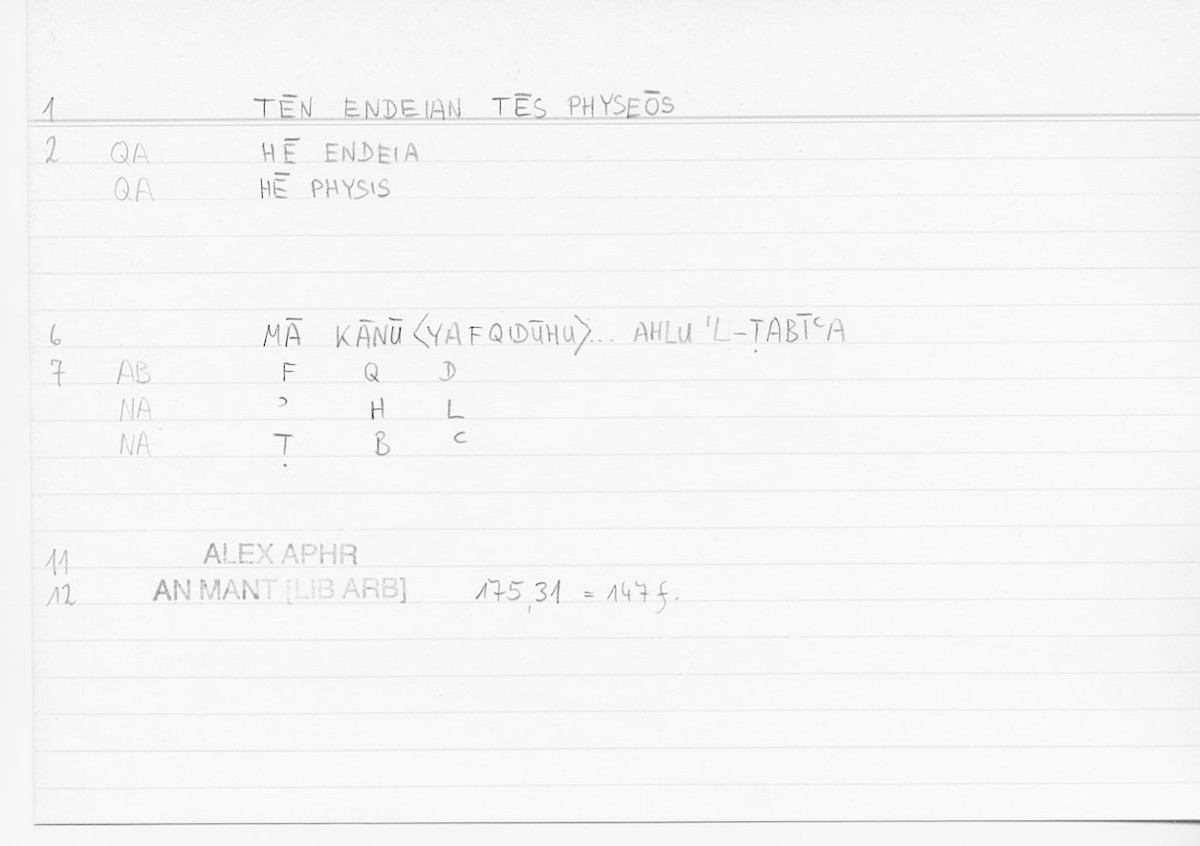 1 TĒN ENDEIAN TĒS PHYSEŌS
2 QA HĒ ENDEIA
QA HĒ PHYSIS
6 MĀ KĀNŪ ⟨YAFQIDŪHU⟩... AHLU 'L-ṬABĪʿA
7 AB F Q D
NA ʾ H L
NA Ṭ B ʿ
11 ALEX APHR
12 AN MANT [LIB ARB] 175,31 = 147 f.